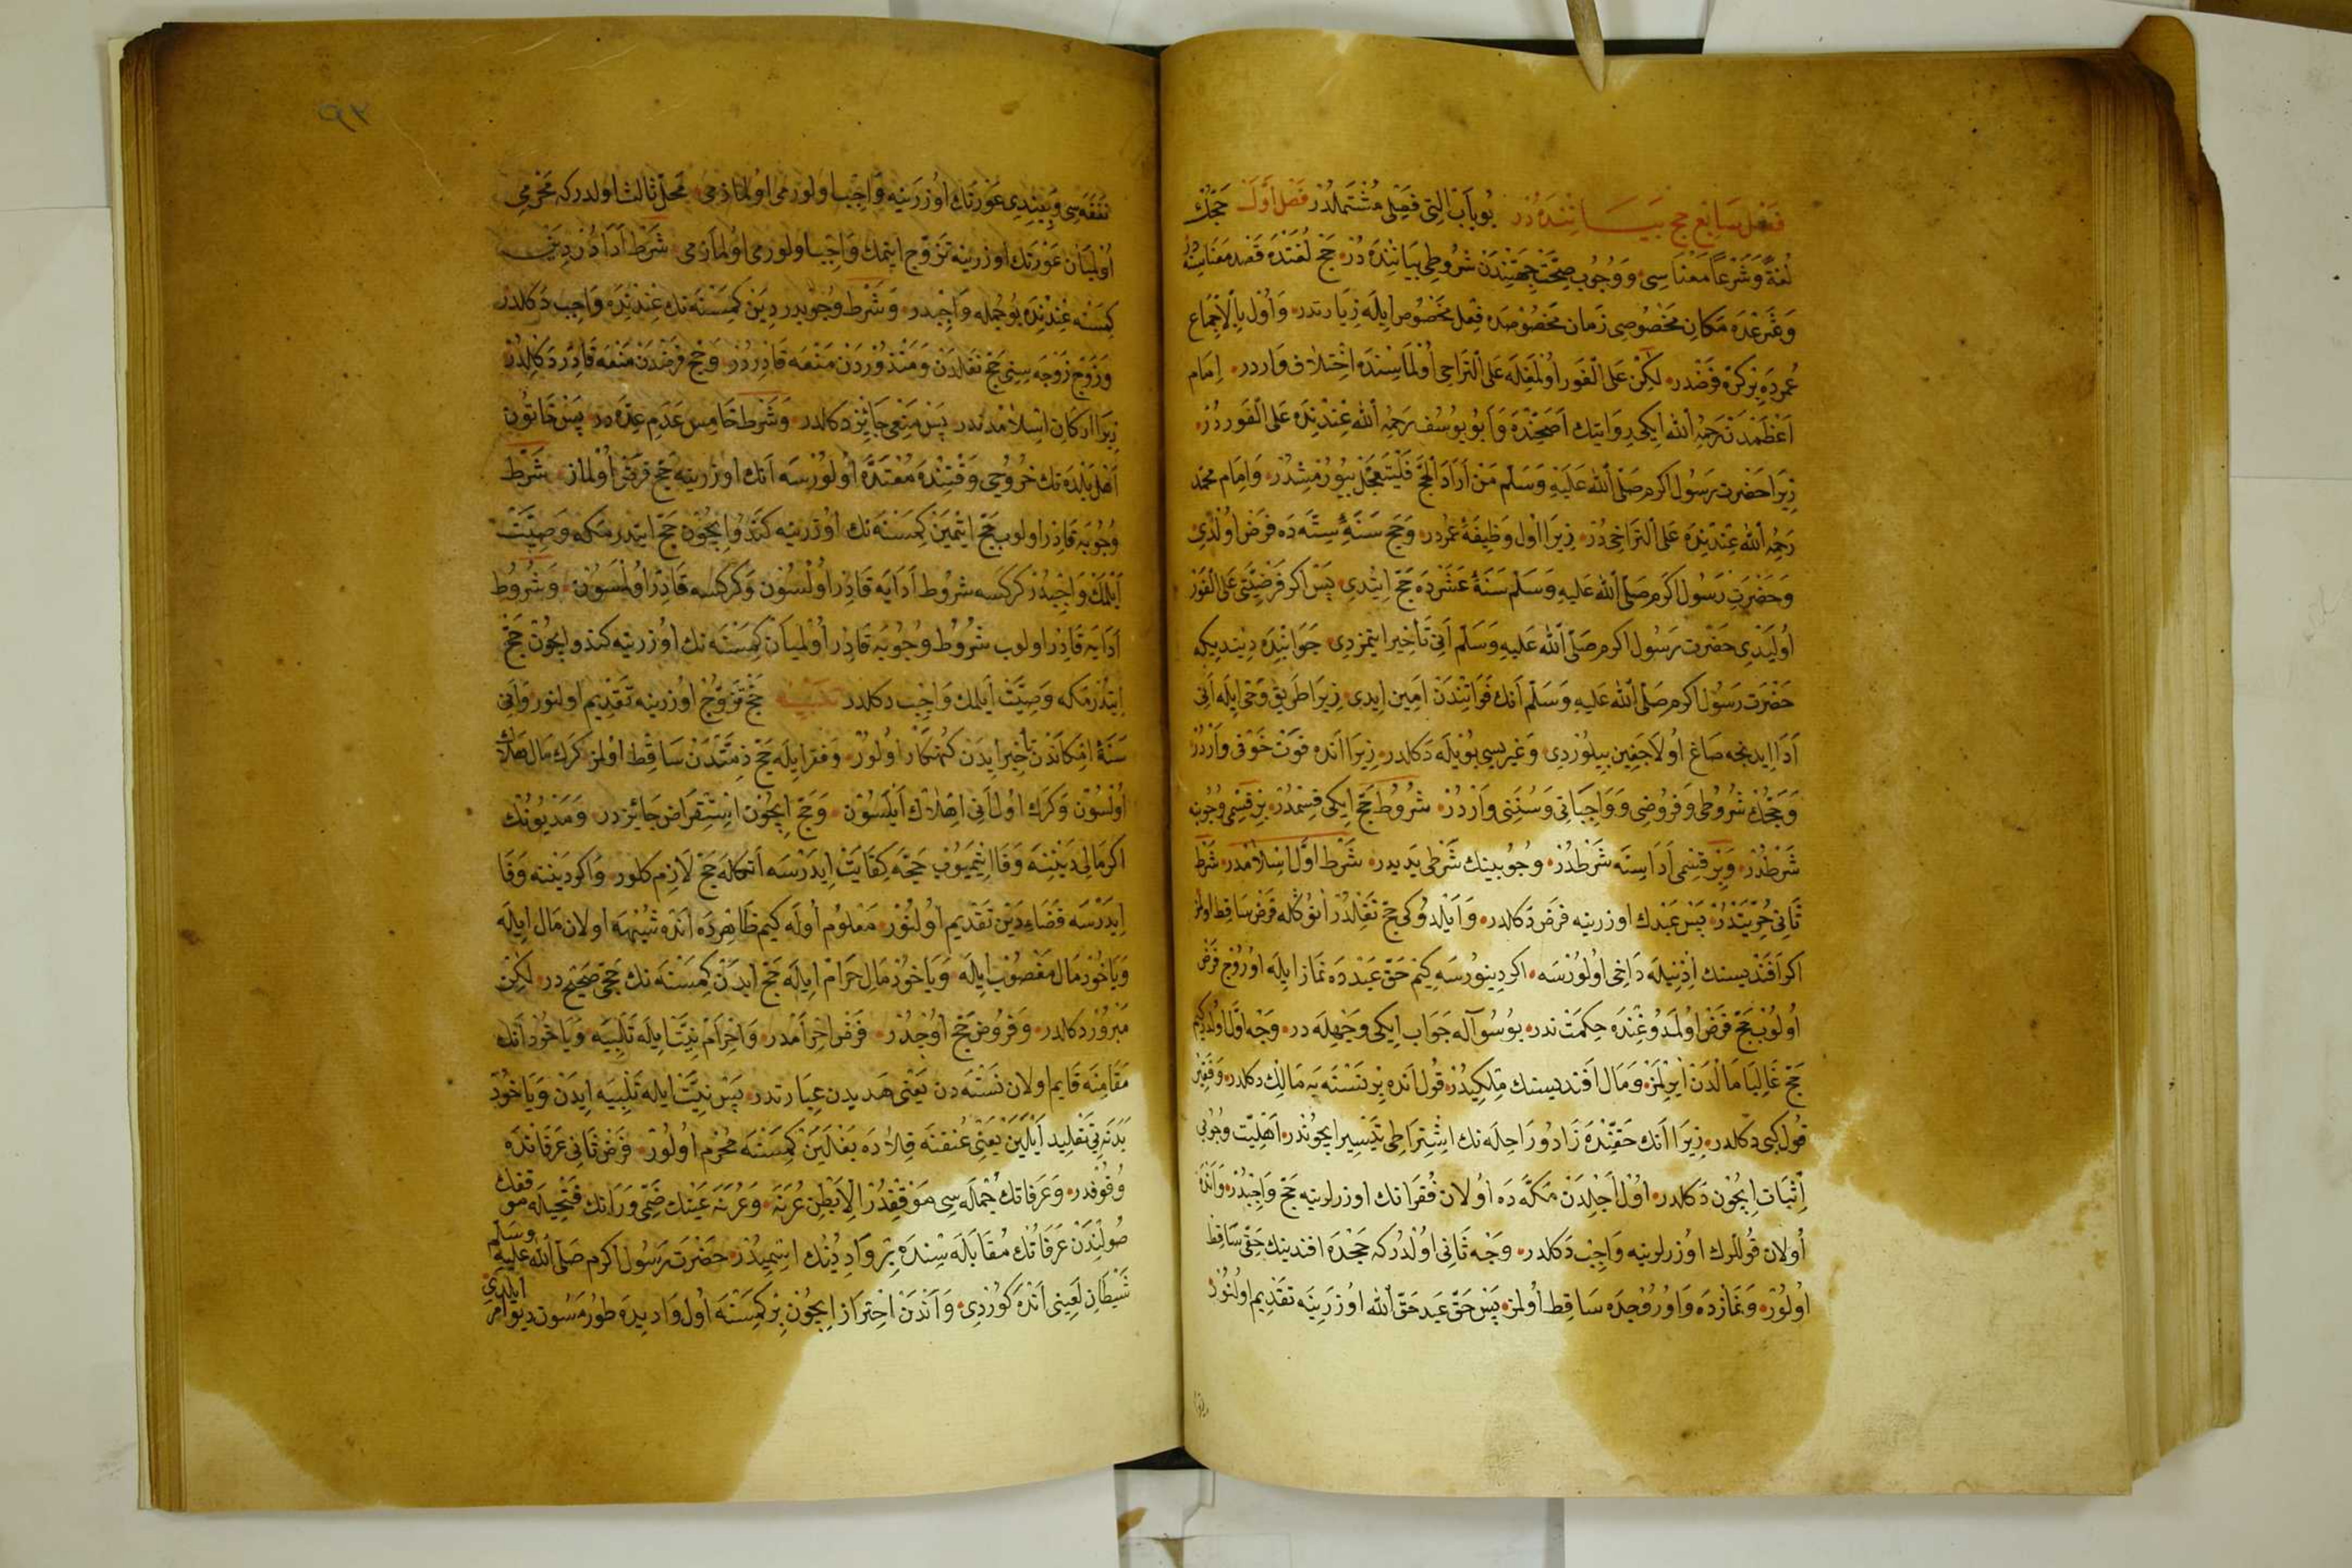 فصل سابع حج بیاننده در بو باب التی فصلی مشتملدر فصل اول حجك
لغة وشرعا معناسی ووجوب صحت جهتندن شروطی بیاننده در حج لغتده قصد معناسنه
وشرعده مکان مخصوصی زمان مخصوصده فعل مخصوص ایله زیارتدر واول بالاجماع
عمرده بر کره فرضدر لکن علی الفور اولمغله علی التراخی اولماسنده اختلاف واردر امام
اعظمدن رحمه الله ایکی روایتك اصحنده وابو یوسف رحمه الله عندنده علی الفوردر
زیرا حضرت رسول اکرم صلی الله علیه وسلم من اراد الحج فلیتعجل بیورمشدر وامام محمد
رحمه الله عندنده علی التراخیدر زیرا اول وظیفۀ عمردر وحج سنۀ ستهده فرض اولدی
وحضرت رسول اکرم صلی الله علیه وسلم سنۀ عشرده حج ایتدی پس اکر فرضیتی علی الفور
اولیدی حضرت رسول اکرم صلی الله علیه وسلم انی تأخیر ایتمزدی جوابنده دیندیکه
حضرت رسول اکرم صلی الله علیه وسلم انك فواتندن امین ایدی زیرا طریق وحی ایله انی
ادا ایدنجه صاغ اولاجغین بیلوردی وغیریسی بویله دکلدر زیرا انده فوت خوفی واردر
وحجك شروطی وفروضی وواجباتی وسننی واردر شروط حج ایکی قسمدر بر قسمی وجوب
شرطدر وبر قسمی اداسنه شرطدر وجوبینك شرطی یدیدر شرط اول اسلامدر شرط
ثانی حریتدر پس عبدك اوزرینه فرض دکلدر وایلدوکی حج نفلدر انوکله فرض ساقط اولمز
اکر افندیسنك اذنیله داخی اولورسه اکر دینورسه کیم حق عبدده نماز ایله اوروج فرض
اولوب حج فرض اولمدوغنده حکمت ندر بو سوآله جواب ایکی وجهله در وجه اول اولدرکیم
حج غالبا مالدن ایرلمز ومال افندیسنك ملکیدر قول انده بر نسنهیه مالك دکلدر وفقیر
قول کبی دکلدر زیرا انك حقنده زاد وراحلهنك اشتراطی تیسیر ایچوندر اهلیت وجوبی
اثبات ایچون دکلدر اول اجلدن مکهده اولان فقرانك اوزرلرینه حج واجبدر وانده
اولان قوللرك اوزرلرینه واجب دکلدر وجه ثانی اولدرکه حجده افندینك حقی ساقط
اولور ونمازده واوروجده ساقط اولمز پس حق عبد حق الله اوزرینه تقدیم اولنور
۹۳
نفقهسی وبیندی عورتك اوزرینه واجب اولورمی اولمازمی محل ثالث اولدرکه محرمی
اولمیان عورتك اوزرینه تزوج ایتمك واجب اولورمی اولمازمی شرط ادادر دین
کمسنه عندنده بو جمله واجبدر وشرط وجوبدر دین کمسنهنك عندنده واجب دکلدر
وزوج زوجهسنی حج نفلدن ومنذوردن منعه قادردر وحج فرضدن منعه قادر دکلدر
زیرا ارکان اسلامدندر پس منعی جائز دکلدر وشرط خامس عدم عدهدر پس خاتون
اهل بلدهنك خروجی وقتنده معتده اولورسه انك اوزرینه حج فرض اولماز شرط
وجوبه قادر اولوب حج ایتمین کمسنهنك اوزرینه کندو ایچون حج ایتدرمکه وصیت
ایلمك واجبدر کرکسه شروط ادایه قادر اولسون وکرکسه قادر اولمسون وشروط
ادایه قادر اولوب شروط وجوبه قادر اولمیان کمسنهنك اوزرینه کندو ایچون حج
ایتدرمکه وصیت ایلمك واجب دکلدر تنبیه حج تزوج اوزرینه تقدیم اولنور وانی
سنۀ امکاندن تأخیر ایدن کنهکار اولور وفقر ایله حج ذمتدن ساقط اولمز کرك مال هلاك
اولسون وکرك اول انی اهلاك ایلسون وحج ایچون استقراض جائزدر ومدیونك
اکر مالی دیننه وفا ایتمیوب حجه کفایت ایدرسه انکله حج لازم کلور واکر دیننه وفا
ایدرسه قضاء دین تقدیم اولنور معلوم اوله کیم ظاهرده انده شبهه اولان مال ایله
ویاخود مال مغصوب ایله ویاخود مال حرام ایله حج ایدن کمسنهنك حجی صحیحدر لکن
مبرور دکلدر وفروض حج اوچدر فرض احرامدر واحرام نیت ایله تلبیه ویاخود انك
مقامنه قایم اولان نسنهدن یعنی هدیدن عبارتدر پس نیت ایله تلبیه ایدن ویاخود
بدنهیی تقلید ایلین یعنی عنقنه قلاده بغلین کمسنه محرم اولور فرض ثانی عرفاتده
وقوفدر وعرفاتك جملهسی موقفدر الا بطن عرنه وعرنه عینك ضمی ورانك فتحیله موقفك
صولندن عرفاتك مقابلهسنده بر وادینك اسمیدر حضرت رسول اکرم صلی الله علیه وسلم
شیطان لعینی انده کوردی واندن احتراز ایچون بر کمسنه اول وادیده طورمسون دیو امر ایلدی